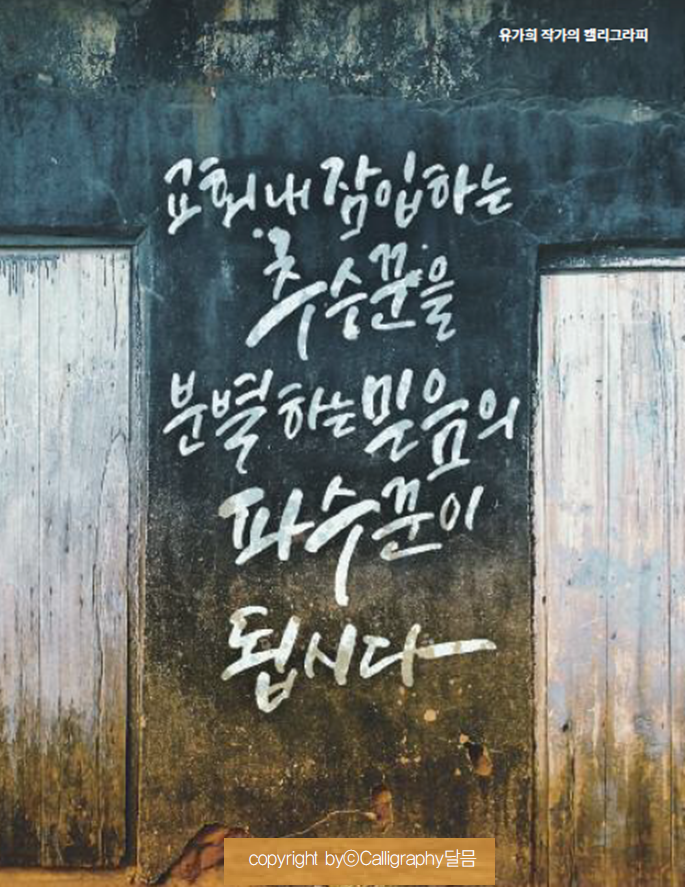 유가희 작가의 캘리그라피
교회 내 잠입하는
추수꾼을
분별하는 믿음의
파수꾼이
됩시다
copyright by©Calligraphy달믐